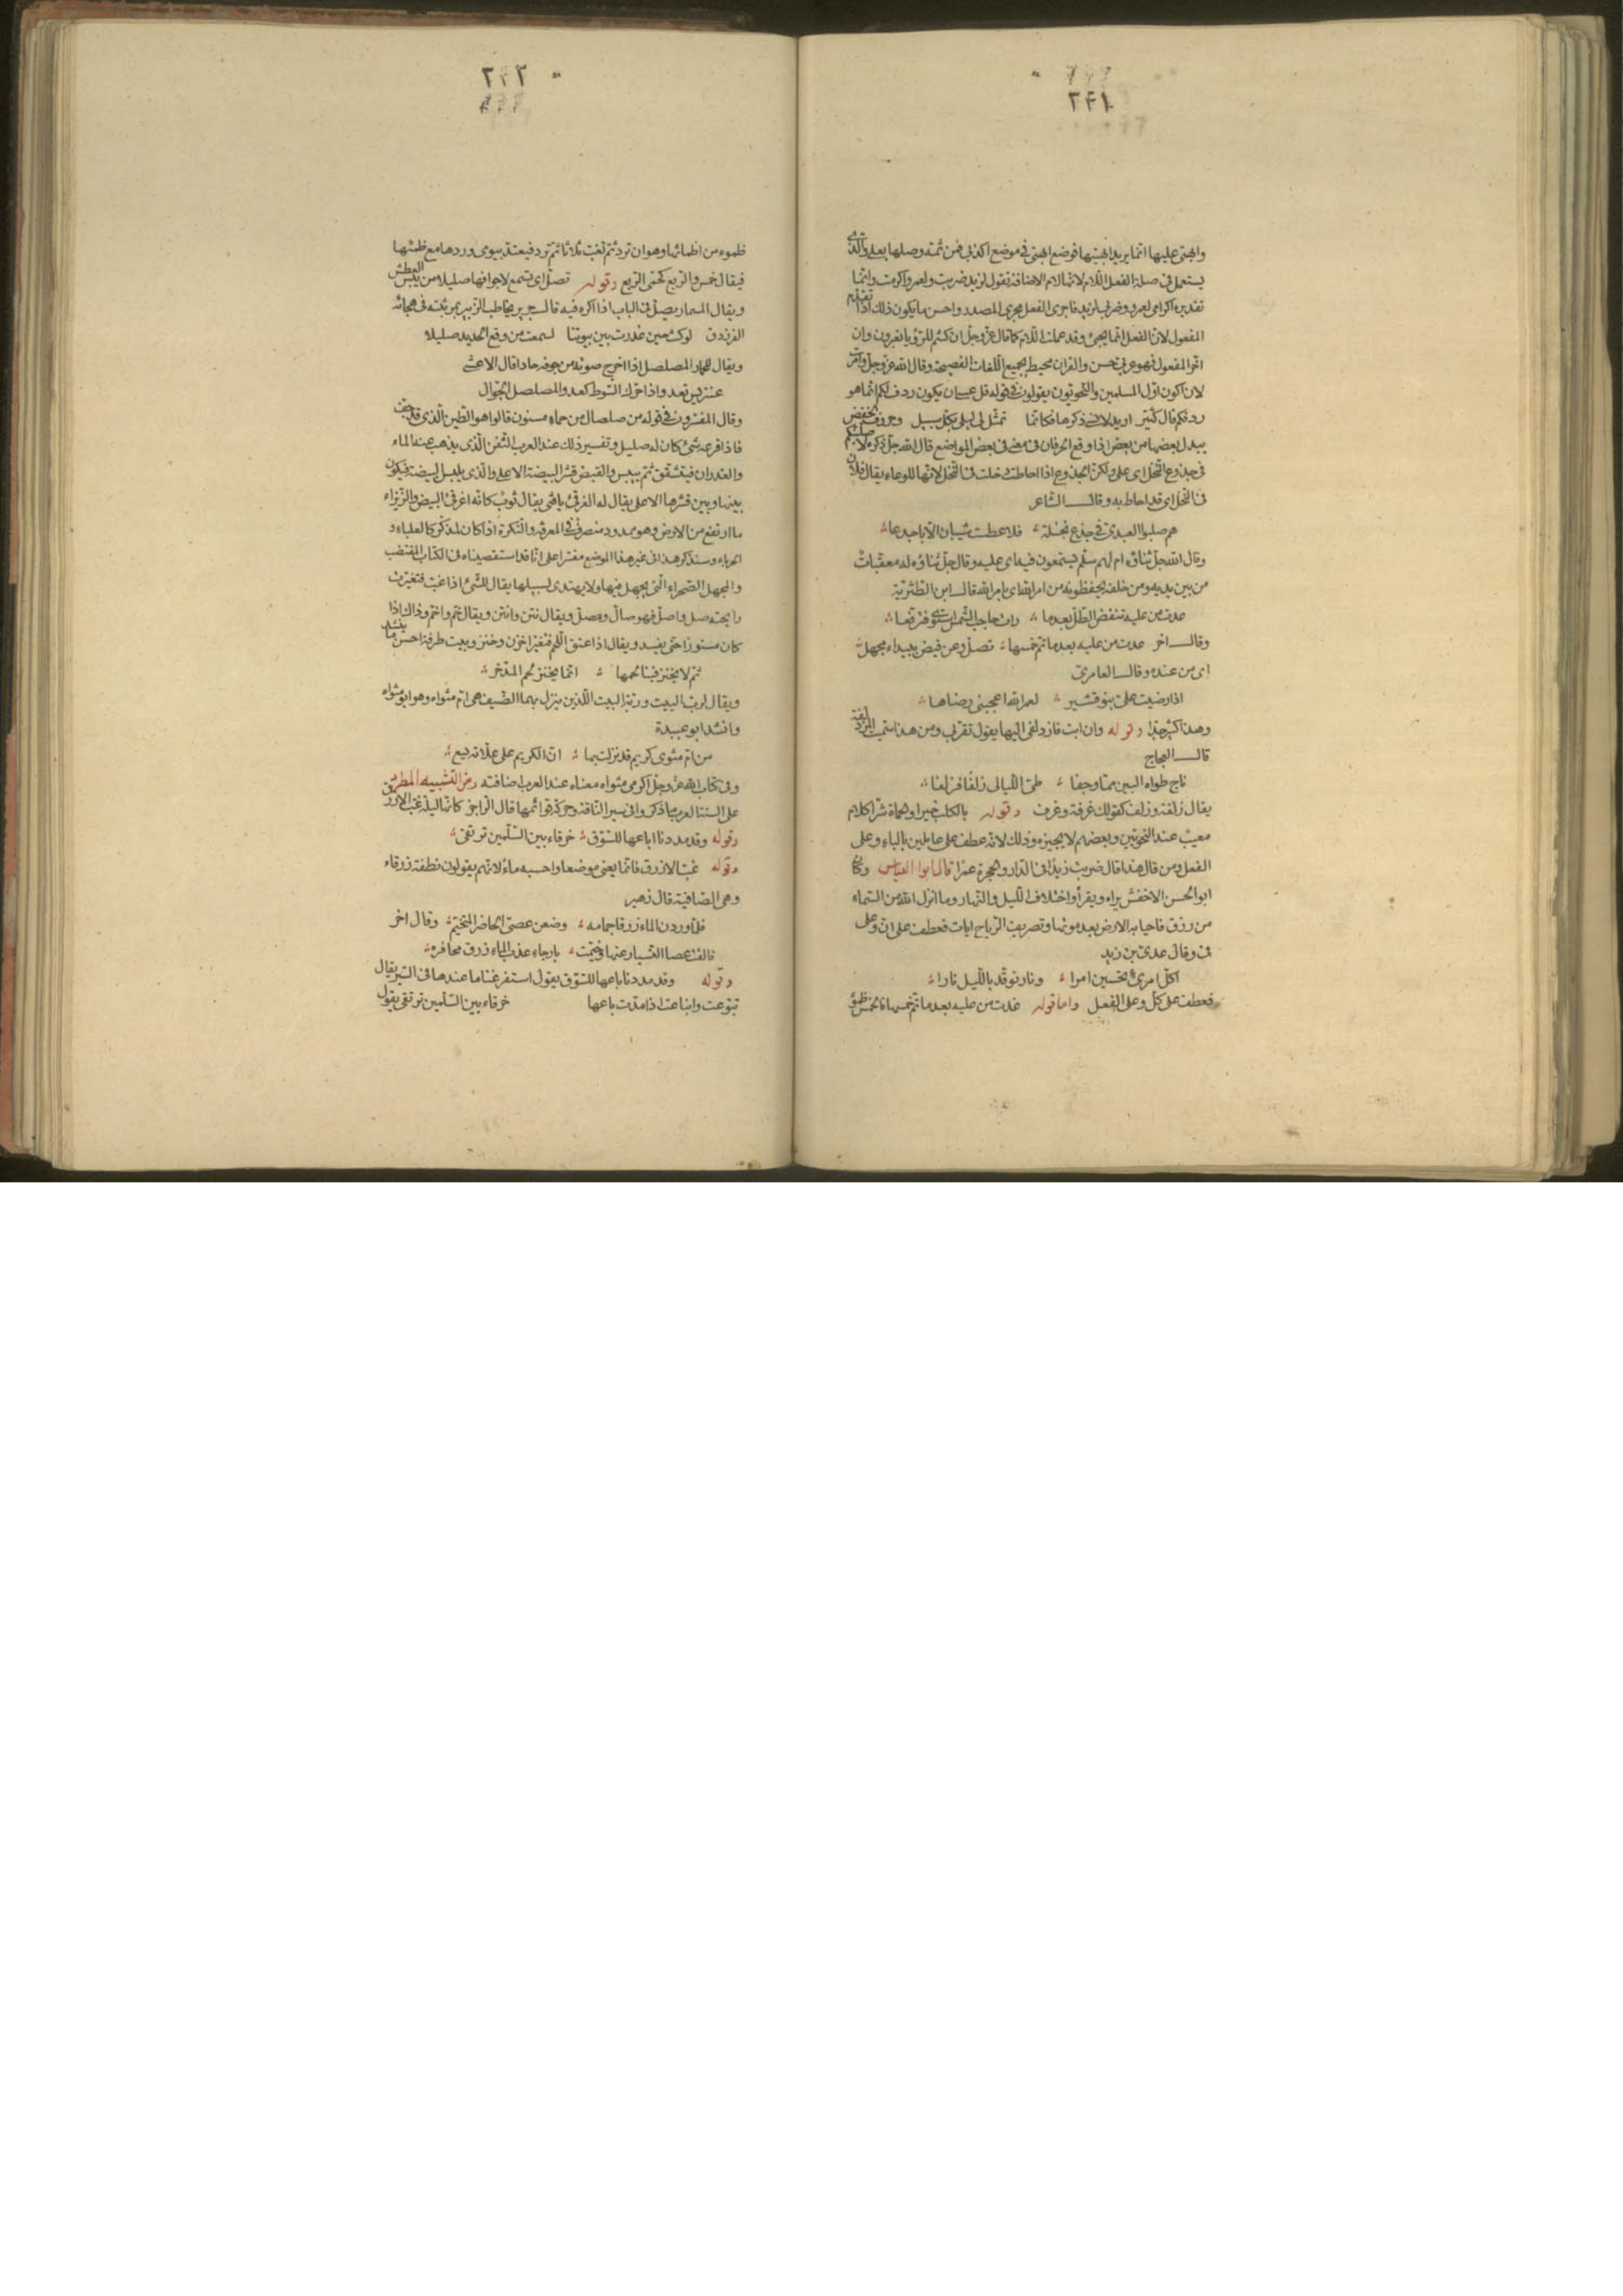 ٢٤١
وابهتى عليها انما يريد ابهتيها فوضع ابهتى فى موضع اكذبى فمن ثمة وصلها بعلى والذى
يستعمل فى صلة الفعل اللام لانها لام الاضافة تقول لزيد ضربت ولعمرو اكرمت وانما
تقديره اكرامى لعمرو وضربى لزيد فاجرى الفعل مجرى المصدر واحسن ما يكون ذلك اذا تقدم
المفعول لان الفعل انما يجىء وقد عملت اللام كما قال عز وجل ان كنتم للرؤيا تعبرون وان
اخر المفعول فهو عربى حسن والقران محيط بجميع اللغات الفصيحة وقال الله عز وجل وامرت
لان اكون اول المسلمين والنحويون يقولون فى قوله قل عسى ان يكون ردف لكم انما هو
ردفكم قال كثير اريد لانسى ذكرها فكانما تمثل لى ليلى بكل سبيل وحروف الخفض
يبدل بعضها من بعض اذا وقع الحرفان فى معنى فى بعض المواضع قال الله جل ذكره ولاصلبنكم
فى جذوع النخل اى على ولكن الجذوع اذا احاطت دخلت فى النخل لانها للوعاء يقال فلان
فى النخل اى قد احاط به وقال الشاعر
هم صلبوا العبدى فى جذع نخلة فلا عطست شيبان الا باجدعا
وقال الله جل ثناؤه ام لهم سلم يستمعون فيه اى عليه وقال جل ثناؤه له معقبات
من بين يديه ومن خلفه يحفظونه من امر الله اى بامر الله قال ابن الطثرية
غدت من عليه تنفض الطل بعدما رات حاجب الشمس استوى فترفعا
وقال اخر غدت من عليه بعدما تم خمسها تصل وعن قيض ببيداء مجهل
اى من عنده وقال العامرى
اذا رضيت على بنو قشير لعمر الله اعجبنى رضاها
وهذا كثير جدا وقوله وان ابت فازدلفى اليها يقول تقربى ومن هذا سميت المزدلفة
قال العجاج
ناج طواه الاين مما وجفا طى الليالى زلفا فزلفا
يقال زلفة وزلف كقولك غرفة وغرف وقوله بالكلب خيرا والحماة شرا كلام
معيب عند النحويين وبعضهم لا يجيزه وذلك لانه عطف على عاملين بالباء وعلى
الفعل ومن قال هذا قال ضربت زيدا فى الدار والحجرة عمرا قال ابوا العباس وكان
ابو الحسن الاخفش يراه ويقرأ واختلاف الليل والنهار وما انزل الله من السماء
من رزق فاحيا به الارض بعد موتها وتصريف الرياح ايات فعطف على ان وعلى
فى وقال عدى بن زيد
اكل امرئ تحسبين امرا ونار توقد بالليل نارا
فعطف على كل وعلى الفعل واما قوله غدت من عليه بعد ما تم خمسها فالخمس ظمؤ
٢٤٢
ظموء من اظمائها وهو ان ترد ثم تغب ثلاثا ثم ترد فيعتد بيومى وردها مع ظمئها
فيقال خمس والربع كحمى الربع وقوله تصل اى تسمع لاجوافها صليلا من يبس العطش
ويقال المسمار يصل فى الباب اذا اكره فيه قال جرير يخاطب الزبير بمرثيته فى هجائه
الفرزدق لو كنت حين غررت بين بيوتنا لسمعت من وقع الحديد صليلا
ويقال للحمار المصلصل اذا اخرج صوته من جوفه حادا قال الاعشى
عنتريس تعدو اذا حرك السوط كعدو المصلصل الجوال
وقال المفسرون فى قوله من صلصال من حماء مسنون قالوا هو الطين الذى قد جف
فاذا قرعه شئ كان له صليل وتفسير ذلك عند العرب الثفن الذى يذهب عنه الماء
والغدران فيتشقق ثم ييبس والقيض قشر البيضة الاعلى والذى يلبس البيضة فيكون
بينها وبين قشرها الاعلى يقال له الغرقئ يا فتى يقال ثوب كانه غرقئ البيض والزيزاء
ما ارتفع من الارض وهو ممدود منصرف فى المعرفة والنكرة اذا كان لمذكر كالعلباء و
الحرباء وسنذكر هذا فى غير هذا الموضع مفسرا على انا قد استقصيناه فى الكتاب المقتضب
والمجهل الصحراء التى يجهل فيها ولا يهتدى لسبيلها يقال للشئ اذا غب فتغيرت
رايحته صل واصل فهو صال ومصل ويقال نتن وانتن ويقال خم واخم وذاك اذا
كان مستورا حتى يفسد ويقال اذا عتق اللحم فتغير اخزن وخنز وبيت طرفة احسن ما ينشد
ثم لا يخنز فينا لحمها انما يخنز لحم المدخر
ويقال لرب البيت وربة البيت اللذين ينزل بهما الضيف هى ام مثواه وهو ابو مثواه
وانشد ابو عبيدة
من ام مثوى كريم قد نزلت بها ان الكريم على علاته يسع
وفى كتاب الله عز وجل اكرمى مثواه معناه عند العرب اضافته ومن التشبيه المطرد
على السنة العرب ما ذكروا فى سير الناقة وحركة قوائمها قال الراجز كانها ليلة غب الازرق
وقوله وقد مددنا اباعها للسوق خرقاء بين السلمين ترتقى
وقوله غب الازرق فانما يعنى موضعا واحسبه ماء لانهم يقولون نطفة زرقاء
وهى الصافية قال زهير
فلما وردن الماء زرقا جمامه وضعن عصى الحاضر المتخيم وقال اخر
فالقت عصا التسيار عنها وخيمت بارجاء عذب الماء زرق محافره
وقوله وقد مددنا باعها للسوق يقول استفرغنا ما عندها فى السير يقال
تبوعت وانباعت اذا مدت باعها خرقاء بين السلمين ترتقى يقول